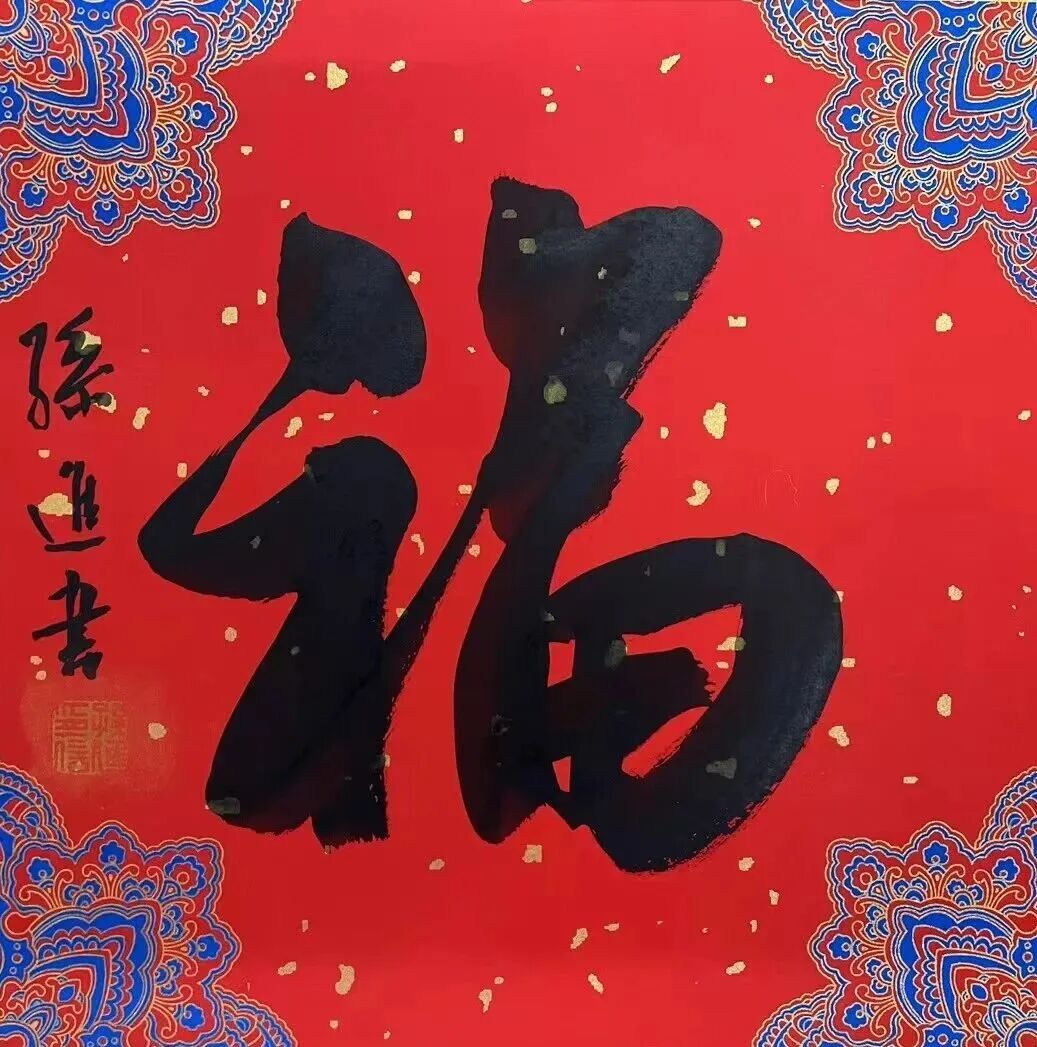 福
孫進書